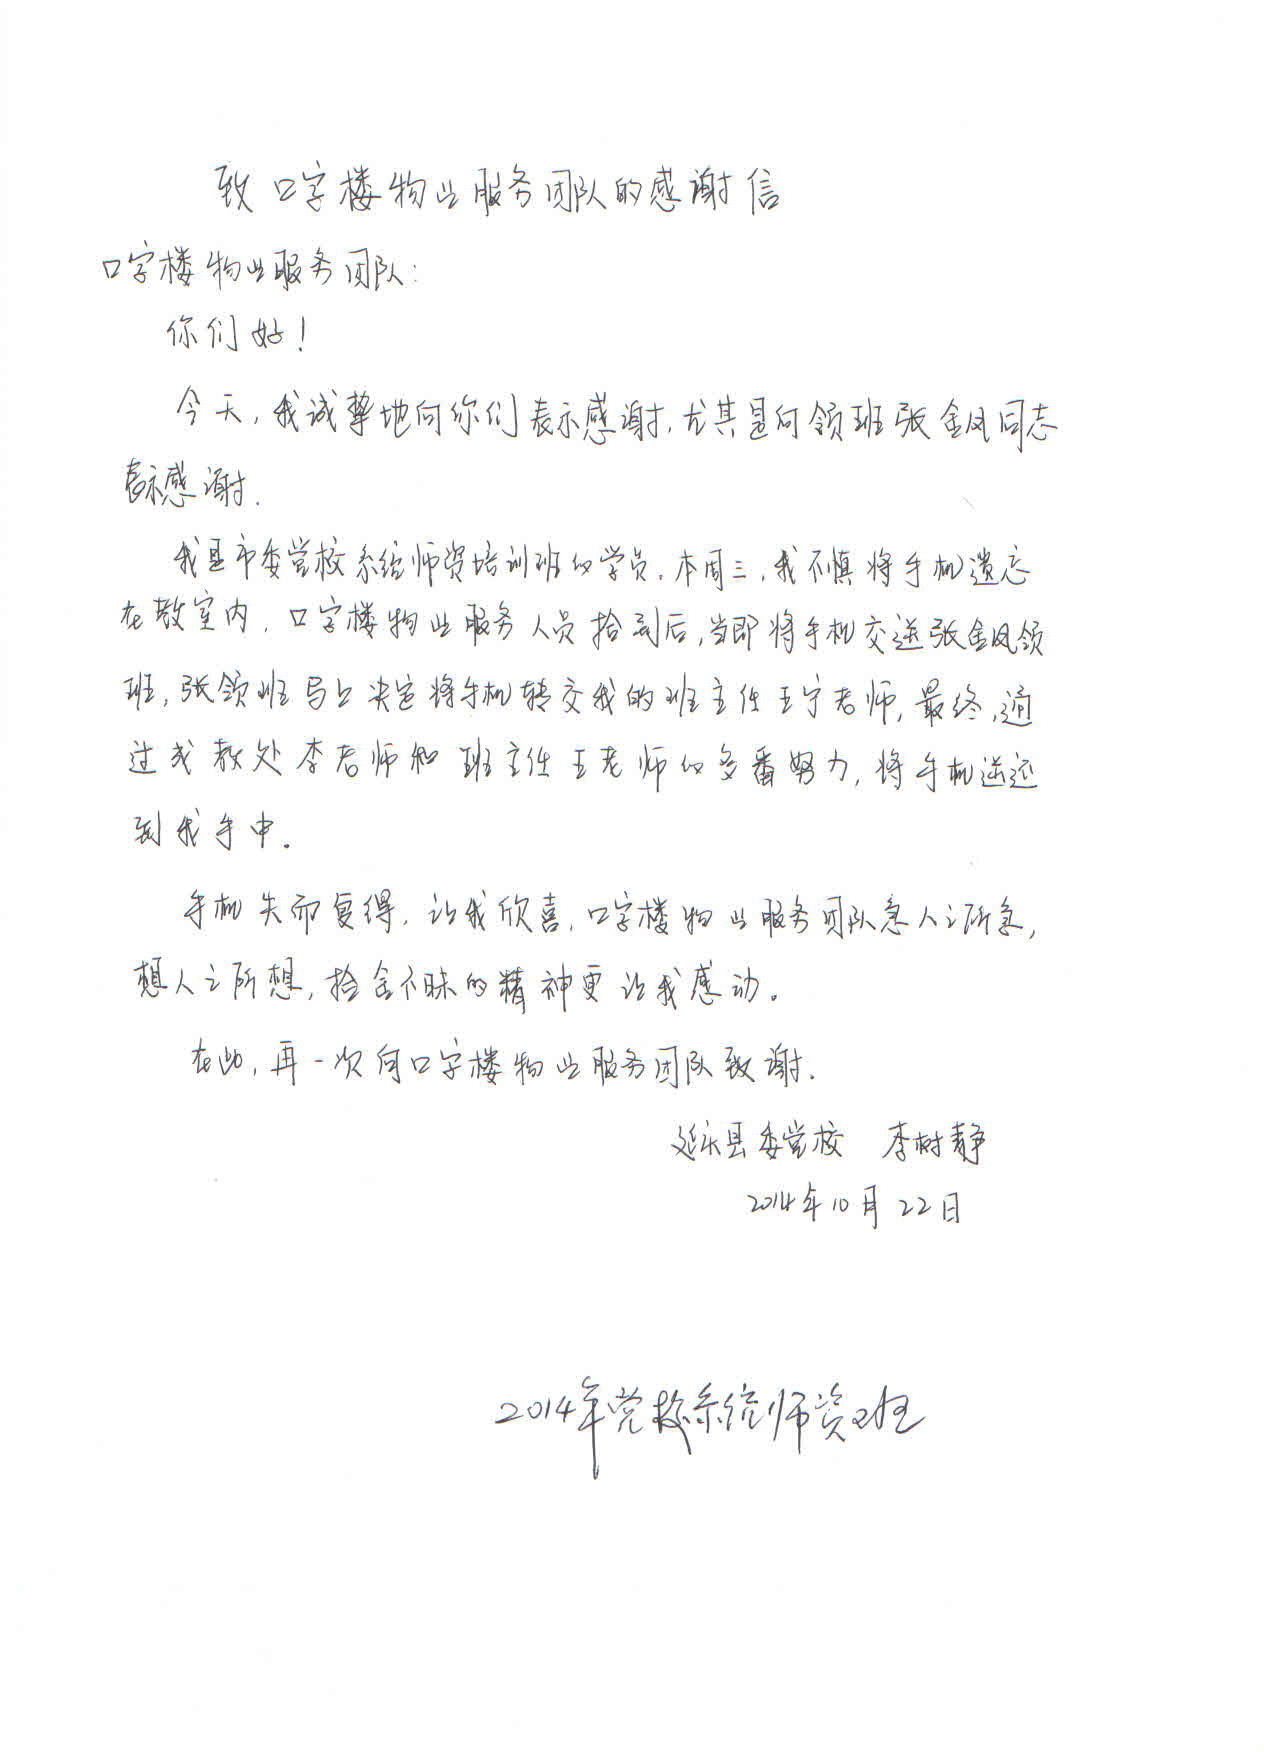 致口字楼物业服务团队的感谢信
口字楼物业服务团队:
你们好!
今天,我诚挚地向你们表示感谢,尤其是向领班张金凤同志
表示感谢.
我是市委党校系统师资培训班的学员.本周三,我不慎将手机遗忘
在教室内,口字楼物业服务人员拾到后,当即将手机交送张金凤领
班,张领班马上决定将手机转交我的班主任王宁老师,最终,通
过成教处李老师和班主任王老师的多番努力,将手机送还
到我手中.
手机失而复得,让我欣喜,口字楼物业服务团队急人之所急,
想人之所想,拾金不昧的精神更让我感动。
在此,再一次向口字楼物业服务团队致谢.
延庆县委党校 李树静
2014年10月22日
2014年党校系统师资班